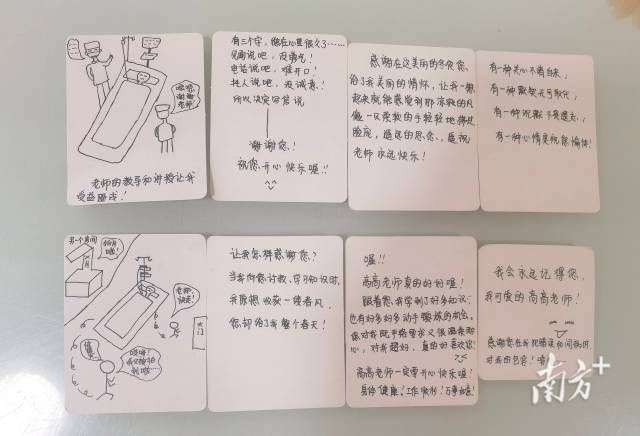 嗯嗯,
谢谢
老师
老师的教导和讲授让我
受益匪浅!
有三个字,憋在心里很久了……
见面说吧,没勇气!
电话说吧,难开口!
托人说吧,没诚意!
所以决定写信说
谢谢您!
祝您开心快乐喔!!
感谢在这美丽的冬夜,您
给了我美丽的情怀,让我一想
起来就能感觉到那凉爽的风
像一只柔软的手轻轻地拂过
脸庞,遥远的思念,遥祝
老师永远快乐!
有一种关心不请自来,
有一种默契无可取代,
有一种
有一种心情是祝您愉快!
另一个房间
老师,
快走!
大门
让我怎样感谢您?
当我向您讨教,学习知识时,
我原想收获一缕春风,
您却给了我整个春天!
喔!!
高高老师真的好好喔!
跟着您,我学到了好多知识,
也有好多好多动手锻炼的机会,
您对我既严格要求又很温柔耐
心,对我超好,真的好喜欢您
高高老师一定要开心快乐喔!
身体健康!工作顺利!万事如意!
我会永远记得您,
我可爱的高高老师!
感谢您在我犯错误和问问题时
对我的包容!
南方+